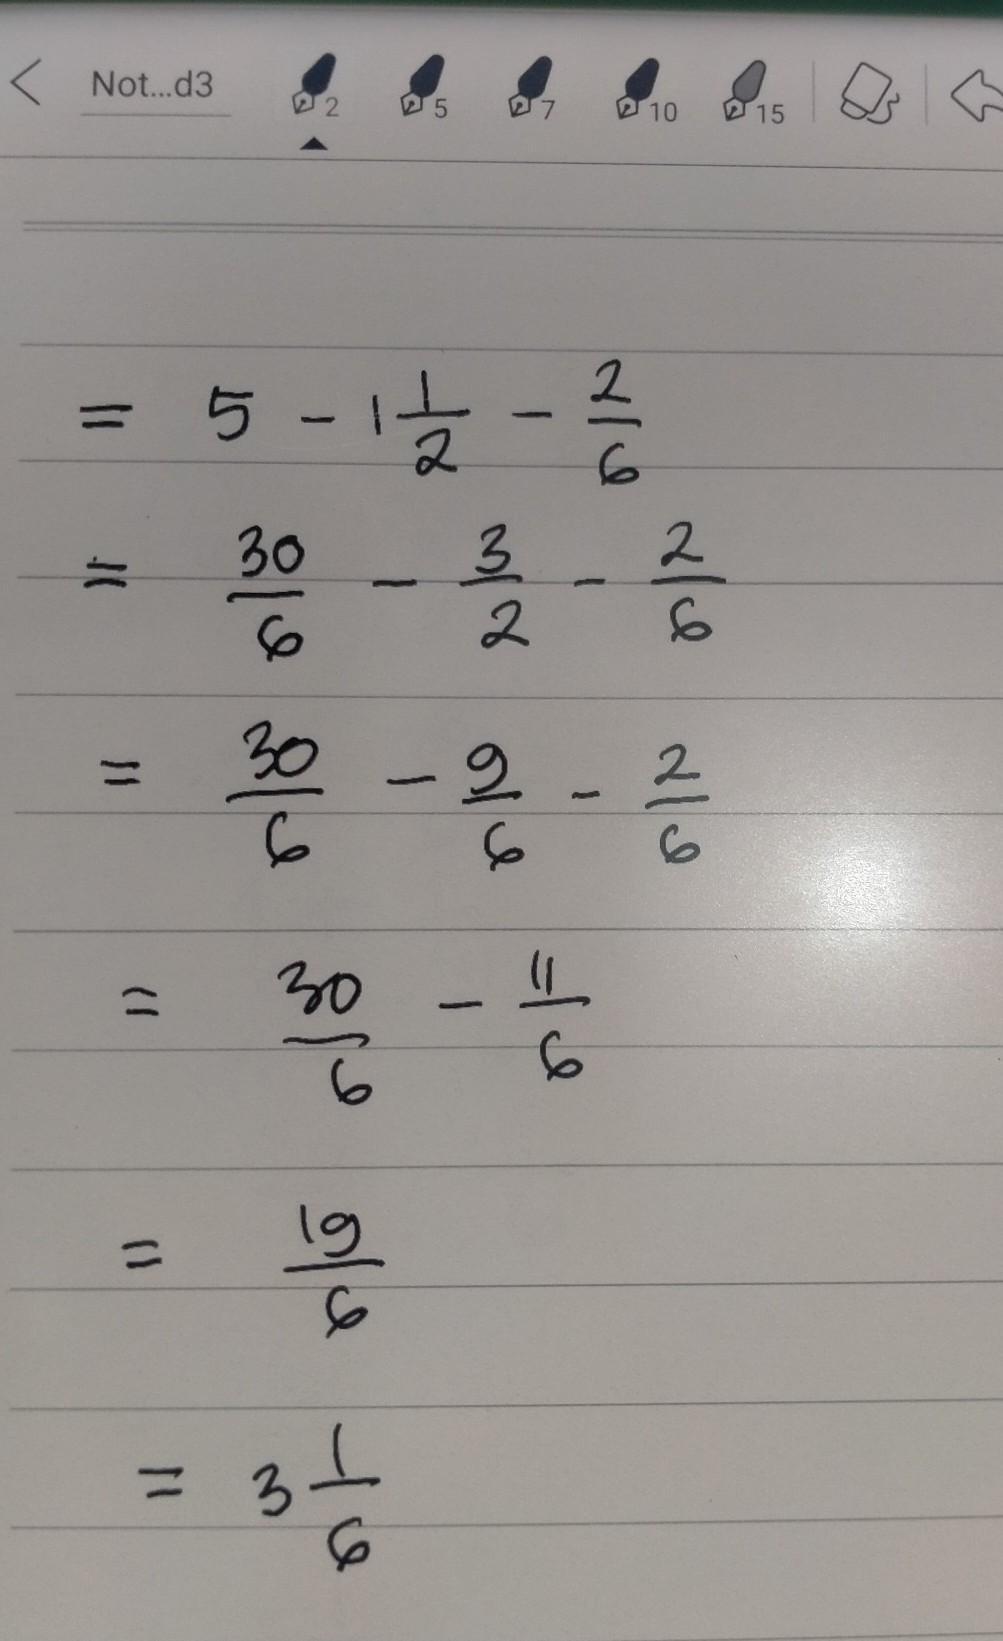 Not...d3 2 5 7 10 15
= 5 - 1 1/2 - 2/6
= 30/6 - 3/2 - 2/6
= 30/6 - 9/6 - 2/6
= 30/6 - 11/6
= 19/6
= 3 1/6